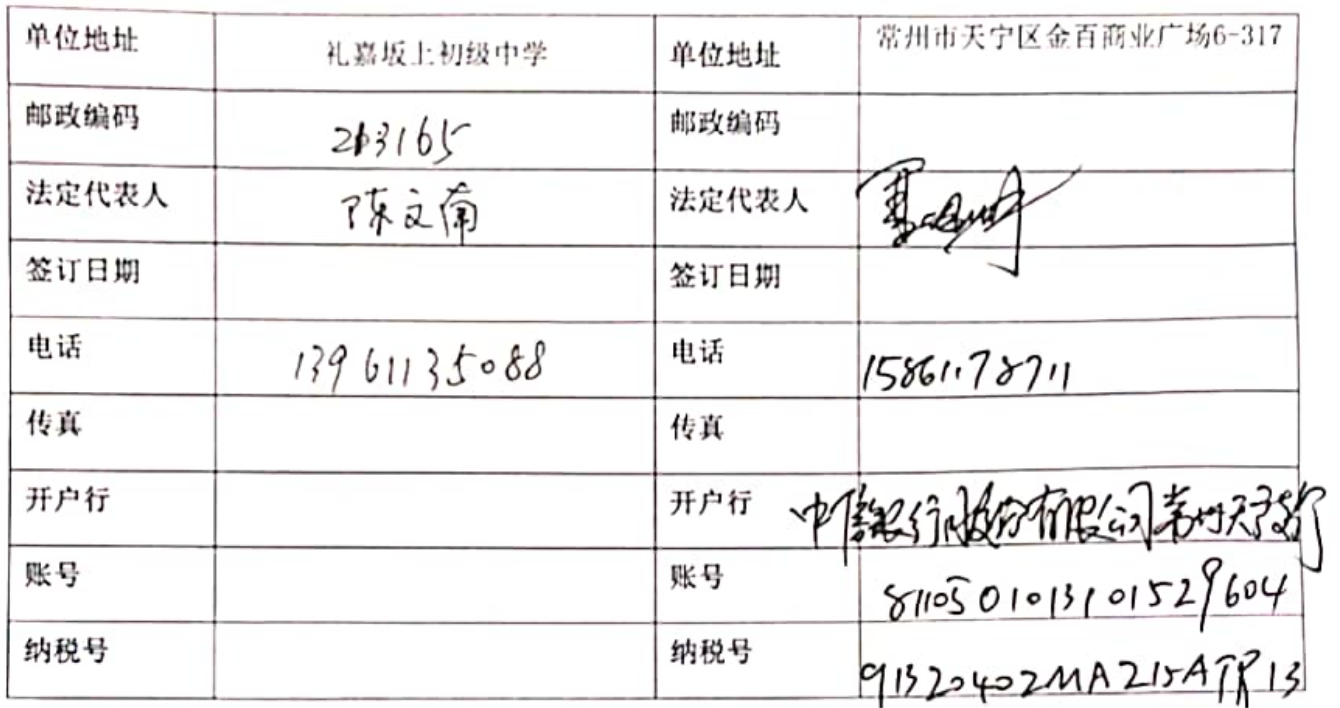 单位地址 礼嘉坂上初级中学 单位地址 常州市天宁区金百商业广场6-317
邮政编码 213165 邮政编码
法定代表人 陈文南 法定代表人
签订日期 签订日期
电话 13961135088 电话 15861178711
传真 传真
开户行 开户行 中信银行股份有限公司常州天宁支行
账号 账号 8110501013101529604
纳税号 纳税号 91320402MA215ATR13